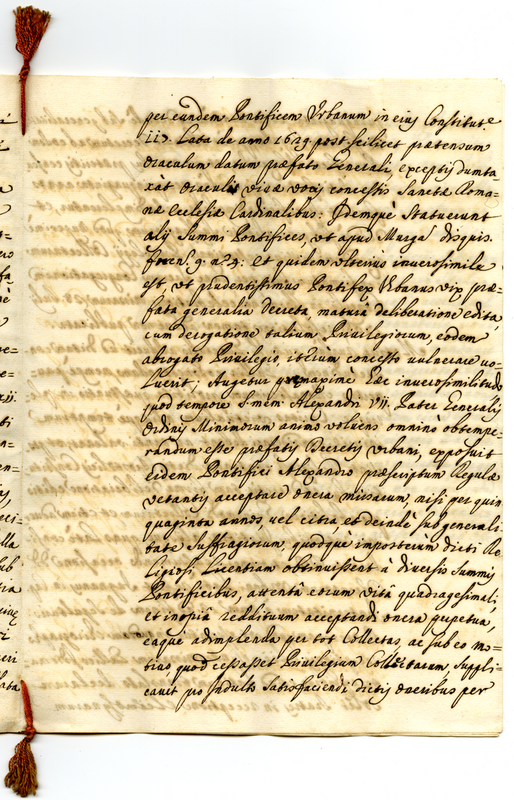 per eundem Pontificem Urbanum in eius Constitut.e
113. Lata de anno 1629. post scilicet prætensum
oraculum datum præfato Generali, exceptis dumta
xàt oraculis vivæ vocis concessis Sanctæ Roma=
næ Ecclesiæ Cardinalibus: Idemquè Statuerunt
alij Summi Pontifices, ut apud Murga disquis.
9. n.º 4: Et quidem ulterius inverosimile
est, ut prudentissimus Pontifex Urbanus vix præ=
fata generalia Decreta, matura deliberatione edita,
cum derogatione talium Privilegiorum, eodem
abrogato Privilegio, iterum concesso vulnerare vo=
luerit; Augetur maximè hæc inverosimilitudo
quod tempore S. mem. Alexandri VII. Pater Generalis
Ordinis Minimorum animo volvens omnino obtempe=
randum esse præfatis Decretis Urbani, exposuit
eidem Pontifici Alexandro præscriptum Regulæ
vetantis acceptare onera missarum, nisi per quin
quaginta annos, vel citra, et deindè sub generali=
tate Suffragiorum, quodque imposterum dicti Re
ligiosi Licentiam obtinuissent à diversis Summis
Pontificibus, attentâ eorum vitâ quadragesimali,
et inopiâ reddituum acceptandi onera perpetua,
eaque adimplenda per tot Collectas, ac sub eo mo=
tivo, quod cessasset Privilegium Collectarum Suppli=
cavit pro Indulto Satisfaciendi dictis oneribus per